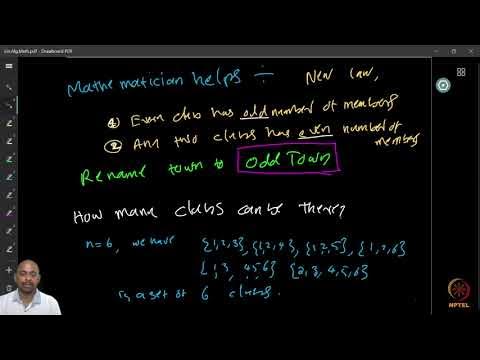 Lin Alg Math.pdf - Drawboard PDF
Mathematician helps ÷ New law,
① Every club has odd number of members
② Any two clubs has even number of members
Rename town to Odd Town
How many clubs can be there?
n=6, we have {1,2,3}, {1,2,4}, {1,2,5}, {1,2,6}
{1,3,4,5,6} {2,3,4,5,6}
is a set of 6 clubs.
NPTEL